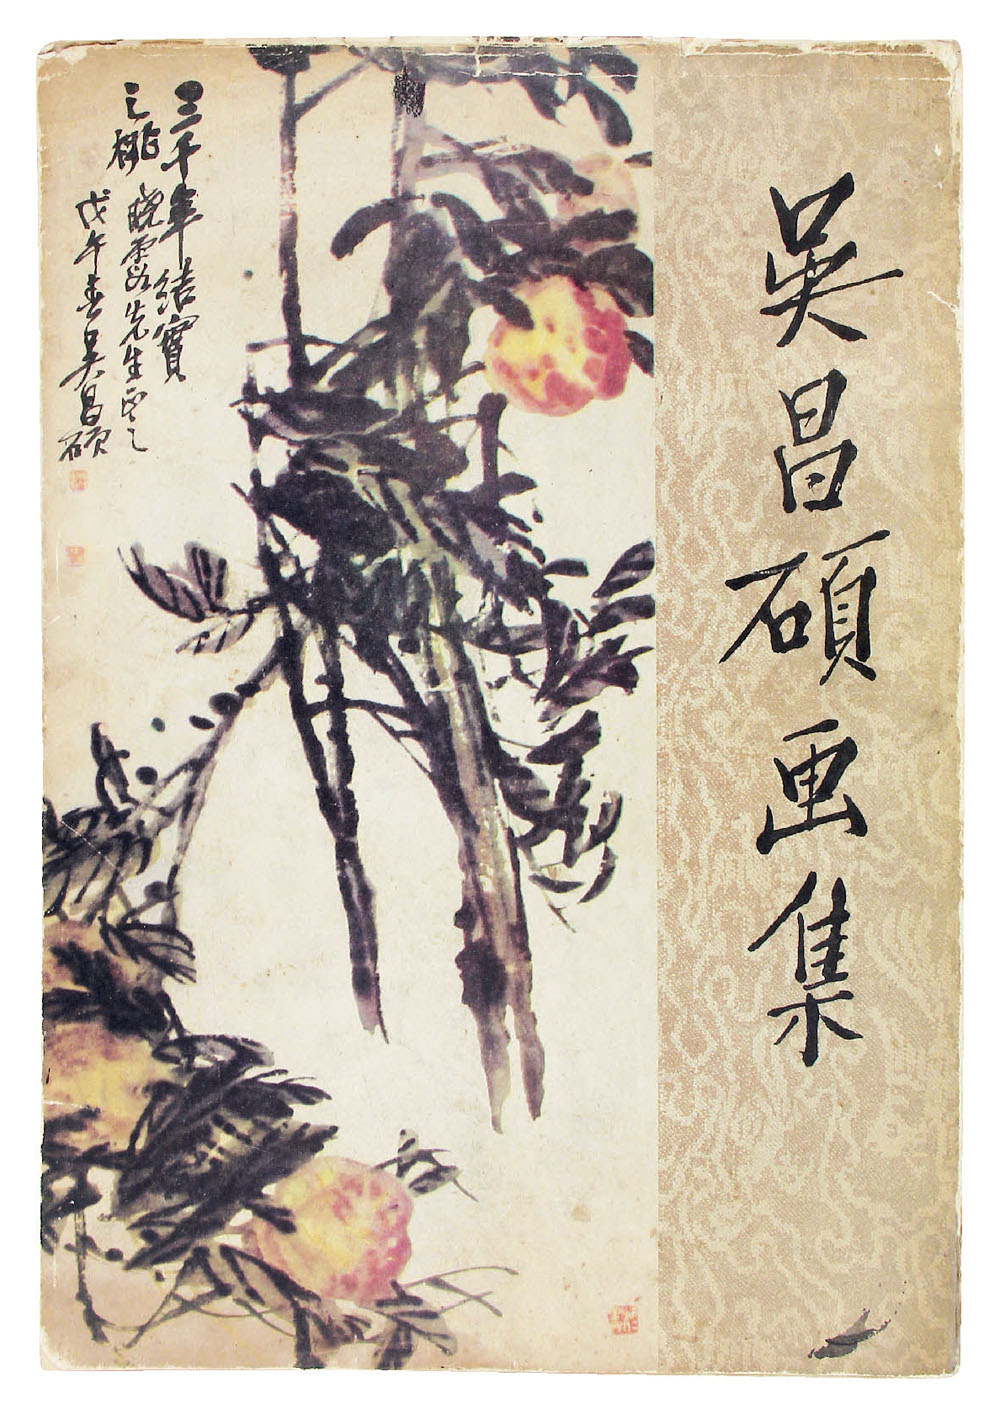 吳昌碩画集
三千年結實
之桃 曉霞先生正之
戊午春吳昌碩